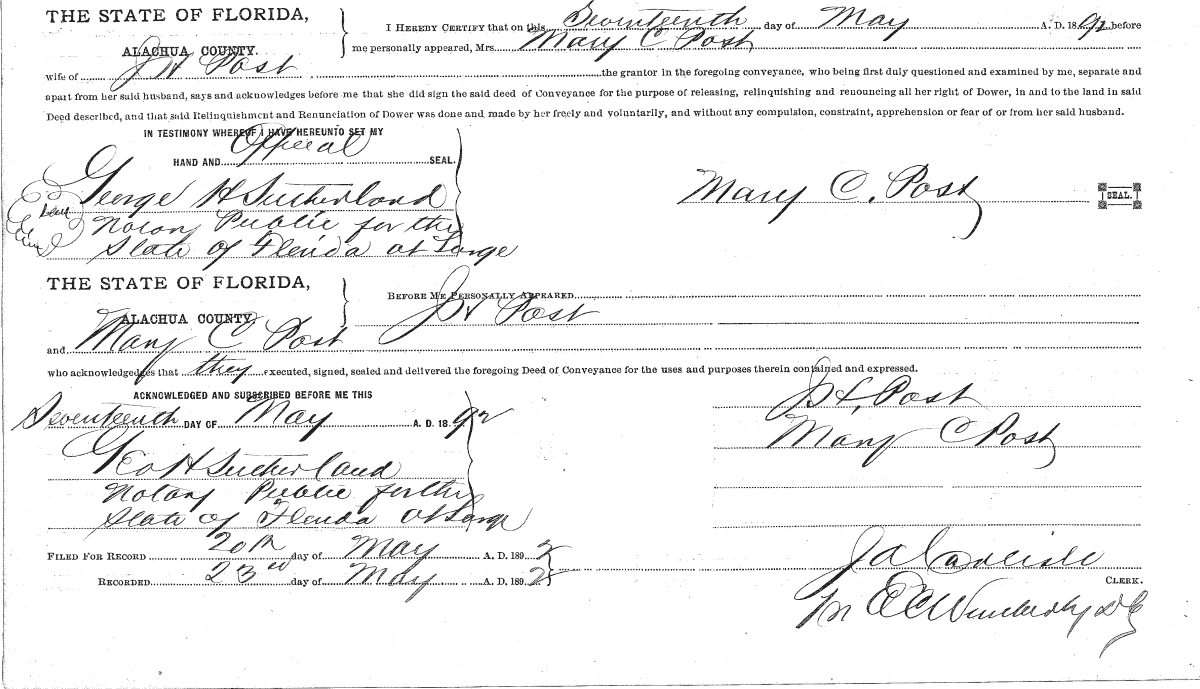 THE STATE OF FLORIDA,
ALACHUA COUNTY.
I HEREBY CERTIFY that on this Seventeenth day of May A. D. 1892 before
me personally appeared, Mrs. Mary C Post
wife of J H Post the grantor in the foregoing conveyance, who being first duly questioned and examined by me, separate and
apart from her said husband, says and acknowledges before me that she did sign the said deed of Conveyance for the purpose of releasing, relinquishing and renouncing all her right of Dower, in and to the land in said
Deed described, and that said Relinquishment and Renunciation of Dower was done and made by her freely and voluntarily, and without any compulsion, constraint, apprehension or fear of or from her said husband.
IN TESTIMONY WHEREOF I HAVE HEREUNTO SET MY
HAND AND Official SEAL.
George H Sutherland
Notary Public for the
State of Florida at Large
Mary C. Post
SEAL.
THE STATE OF FLORIDA,
ALACHUA COUNTY.
BEFORE ME PERSONALLY APPEARED
J H Post
and Mary C Post
who acknowledges that they executed, signed, sealed and delivered the foregoing Deed of Conveyance for the uses and purposes therein contained and expressed.
ACKNOWLEDGED AND SUBSCRIBED BEFORE ME THIS
Seventeenth DAY OF May A. D. 1892
Geo H Sutherland
Notary Public for the
State of Florida at Large
J H. Post
Mary C Post
FILED FOR RECORD 20th day of May A. D. 1892
RECORDED 23rd day of May A. D. 1892
J A Carlisle
CLERK.
E C Wimberly D C